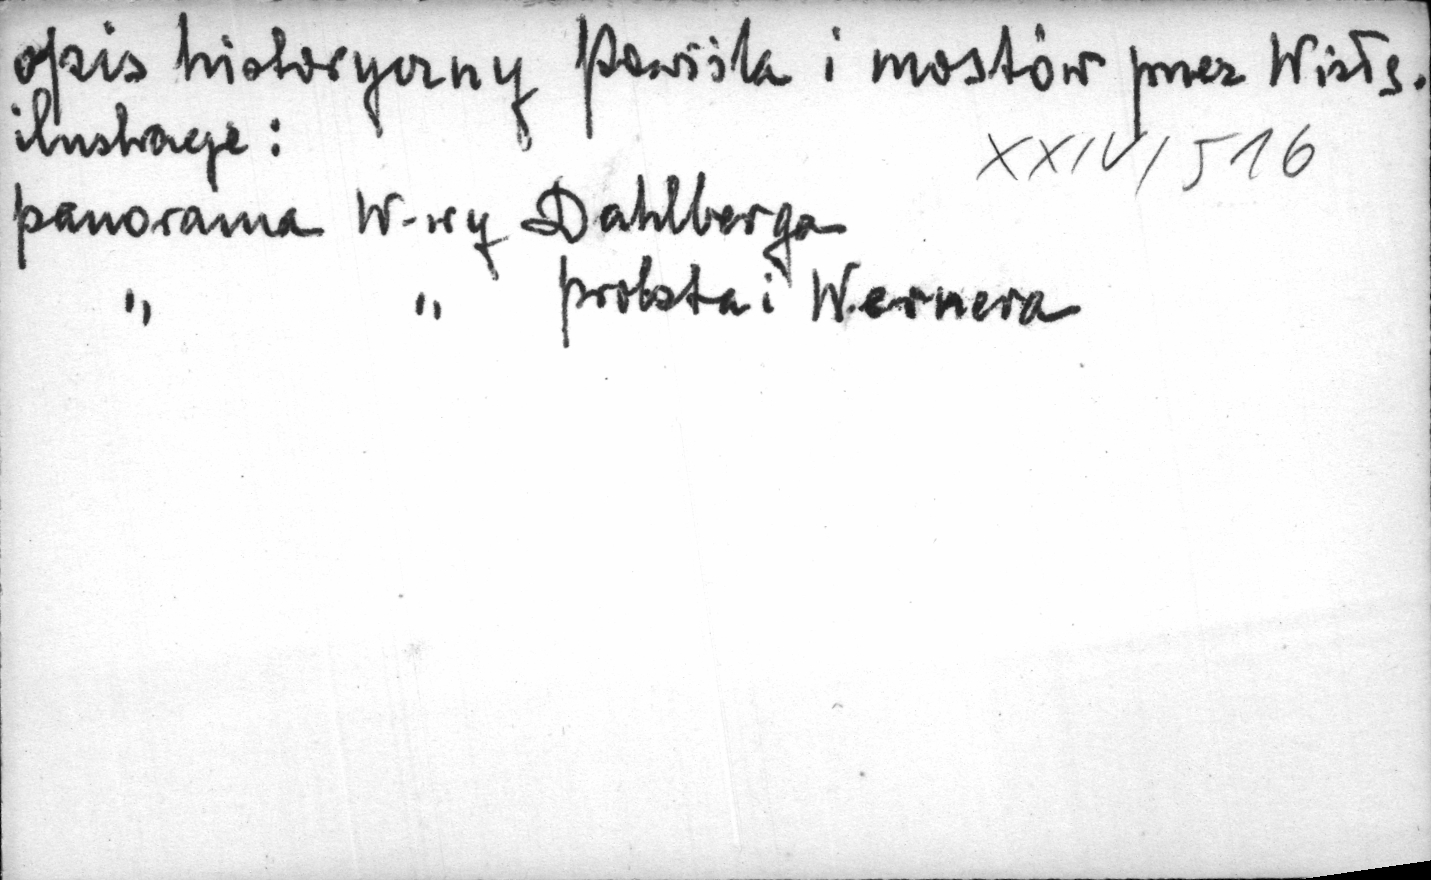 opis historyczny Powiśla i mostów przez Wisłę.
ilustracje:
XXIV/516
panorama W-wy Dahlberga
" " probsta i Wernera